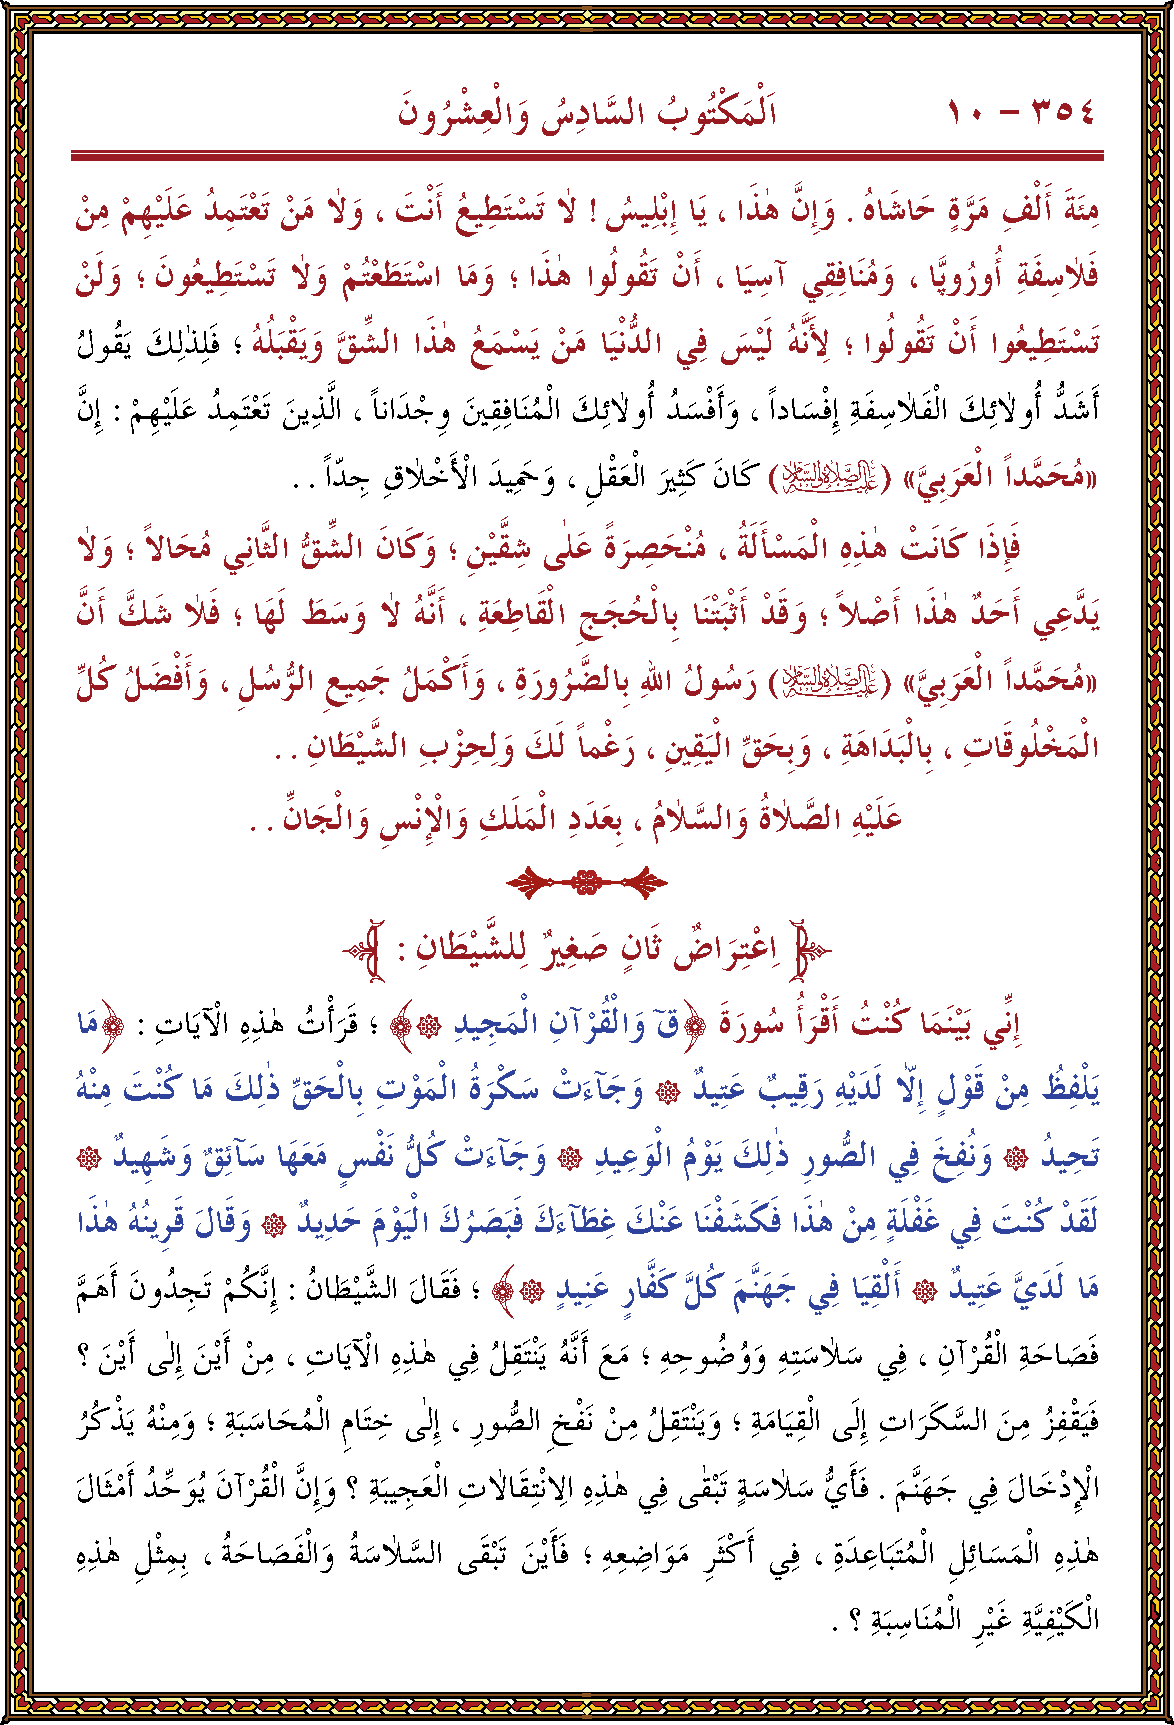 ٣٥٤ – ١٠ اَلْمَكْتُوبُ السَّادِسُ وَالْعِشْرُونَ
مِئَةَ أَلْفِ مَرَّةٍ حَاشَاهُ . وَإِنَّ هٰذَا ، يَا إِبْلِيسُ ! لَا تَسْتَطِيعُ أَنْتَ ، وَلَا مَنْ تَعْتَمِدُ عَلَيْهِمْ مِنْ
فَلَاسِفَةِ أُورُوپَا ، وَمُنَافِقِي آسِيَا ، أَنْ تَقُولُوا هٰذَا ؛ وَمَا اسْتَطَعْتُمْ وَلَا تَسْتَطِيعُونَ ؛ وَلَنْ
تَسْتَطِيعُوا أَنْ تَقُولُوا ؛ لِأَنَّهُ لَيْسَ فِي الدُّنْيَا مَنْ يَسْمَعُ هٰذَا الشِّقَّ وَيَقْبَلُهُ ؛ فَلِذٰلِكَ يَقُولُ
أَشَدُّ أُولَائِكَ الْفَلَاسِفَةِ إِفْسَاداً ، وَأَفْسَدُ أُولَائِكَ الْمُنَافِقِينَ وِجْدَاناً ، الَّذِينَ تَعْتَمِدُ عَلَيْهِمْ : إِنَّ
«مُحَمَّداً الْعَرَبِيَّ» (عَلَيْهِ الصَّلَاةُ وَالسَّلَامُ) كَانَ كَثِيرَ الْعَقْلِ ، وَحَمِيدَ الْأَخْلَاقِ جِدّاً . .
فَإِذَا كَانَتْ هٰذِهِ الْمَسْأَلَةُ ، مُنْحَصِرَةً عَلٰى شِقَّيْنِ ؛ وَكَانَ الشِّقُّ الثَّانِي مُحَالاً ؛ وَلَا
يَدَّعِي أَحَدٌ هٰذَا أَصْلاً ؛ وَقَدْ أَثْبَتْنَا بِالْحُجَجِ الْقَاطِعَةِ ، أَنَّهُ لَا وَسَطَ لَهَا ؛ فَلَا شَكَّ أَنَّ
«مُحَمَّداً الْعَرَبِيَّ» (عَلَيْهِ الصَّلَاةُ وَالسَّلَامُ) رَسُولُ اللهِ بِالضَّرُورَةِ ، وَأَكْمَلُ جَمِيعِ الرُّسُلِ ، وَأَفْضَلُ كُلِّ
الْمَخْلُوقَاتِ ، بِالْبَدَاهَةِ ، وَبِحَقِّ الْيَقِينِ ، رَغْماً لَكَ وَلِحِزْبِ الشَّيْطَانِ . .
عَلَيْهِ الصَّلَاةُ وَالسَّلَامُ ، بِعَدَدِ الْمَلَكِ وَالْإِنْسِ وَالْجَانِّ . .
اِعْتِرَاضٌ ثَانٍ صَغِيرٌ لِلشَّيْطَانِ :
إِنِّي بَيْنَمَا كُنْتُ أَقْرَأُ سُورَةَ ﴿قٓ وَالْقُرْآنِ الْمَجِيدِ ۞﴾ ؛ قَرَأْتُ هٰذِهِ الْآيَاتِ : ﴿مَا
يَلْفِظُ مِنْ قَوْلٍ إِلَّا لَدَيْهِ رَقِيبٌ عَتِيدٌ ۞ وَجَآءَتْ سَكْرَةُ الْمَوْتِ بِالْحَقِّ ذٰلِكَ مَا كُنْتَ مِنْهُ
تَحِيدُ ۞ وَنُفِخَ فِي الصُّورِ ذٰلِكَ يَوْمُ الْوَعِيدِ ۞ وَجَآءَتْ كُلُّ نَفْسٍ مَعَهَا سَآئِقٌ وَشَهِيدٌ ۞
لَقَدْ كُنْتَ فِي غَفْلَةٍ مِنْ هٰذَا فَكَشَفْنَا عَنْكَ غِطَآءَكَ فَبَصَرُكَ الْيَوْمَ حَدِيدٌ ۞ وَقَالَ قَرِينُهُ هٰذَا
مَا لَدَيَّ عَتِيدٌ ۞ أَلْقِيَا فِي جَهَنَّمَ كُلَّ كَفَّارٍ عَنِيدٍ ۞﴾ ؛ فَقَالَ الشَّيْطَانُ : إِنَّكُمْ تَجِدُونَ أَهَمَّ
فَصَاحَةِ الْقُرْآنِ ، فِي سَلَاسَتِهِ وَوُضُوحِهِ ؛ مَعَ أَنَّهُ يَنْتَقِلُ فِي هٰذِهِ الْآيَاتِ ، مِنْ أَيْنَ إِلٰى أَيْنَ ؟
فَيَقْفِزُ مِنَ السَّكَرَاتِ إِلَى الْقِيَامَةِ ؛ وَيَنْتَقِلُ مِنْ نَفْخِ الصُّورِ ، إِلٰى خِتَامِ الْمُحَاسَبَةِ ؛ وَمِنْهُ يَذْكُرُ
الْإِدْخَالَ فِي جَهَنَّمَ . فَأَيُّ سَلَاسَةٍ تَبْقٰى فِي هٰذِهِ الِانْتِقَالَاتِ الْعَجِيبَةِ ؟ وَإِنَّ الْقُرْآنَ يُوَحِّدُ أَمْثَالَ
هٰذِهِ الْمَسَائِلِ الْمُتَبَاعِدَةِ ، فِي أَكْثَرِ مَوَاضِعِهِ ؛ فَأَيْنَ تَبْقَى السَّلَاسَةُ وَالْفَصَاحَةُ ، بِمِثْلِ هٰذِهِ
الْكَيْفِيَّةِ غَيْرِ الْمُنَاسِبَةِ ؟ .